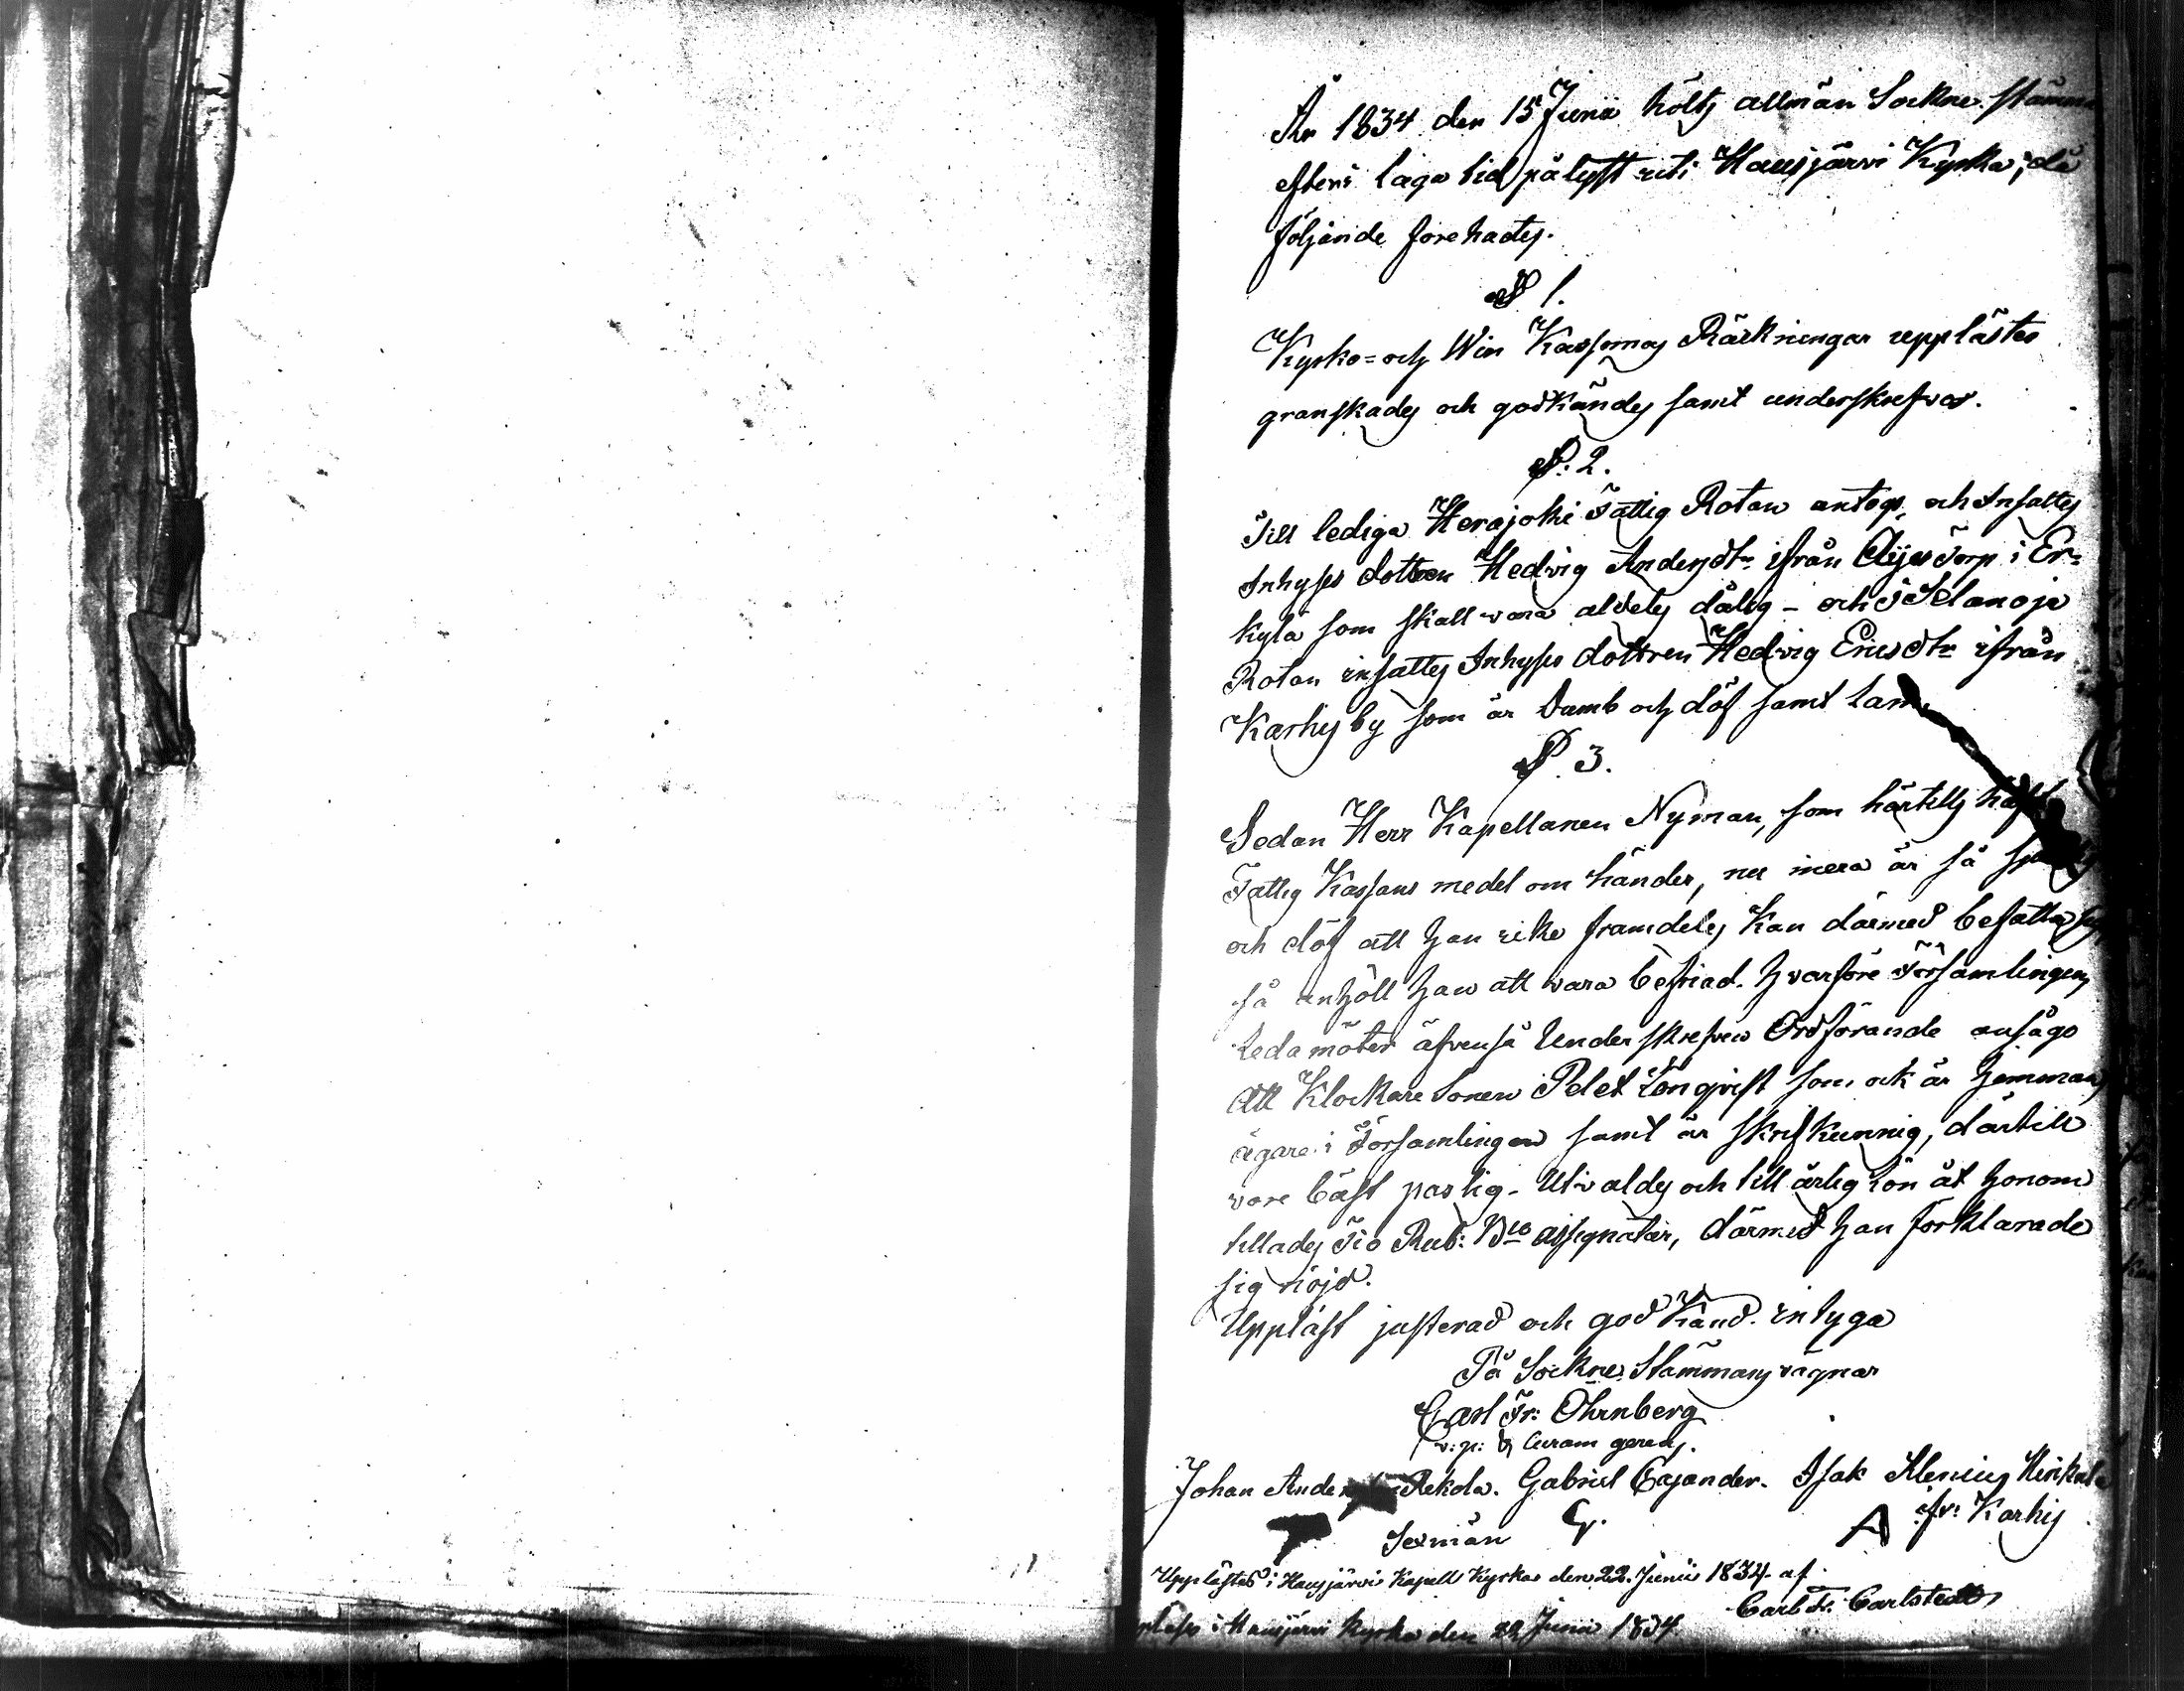 År 1834 den 15 Junii höltz allmän Sockne stämma
efter i laga tid pålyst uti Hausjärvi Kyrka; då
följande förehades.
§ 1.
Kyrko= och Win Kassornas Räckningar uppläste
granskades och godkändes samt underskrefvos.
§. 2.
Till lediga Herajoki Fattig Rotan antogs, och Insattes
Inhyses dottren Hedvig Andersdtr ifrån Torp i Er=
kylä som skall vara aldeles dålig – och i Selanoja
Rotan insattes Inhyses dottren Hedvig Ericsdtr ifrån
Karhis by som är Dumb och döf samt lam.
§. 3.
Sedan Herr Kapellanen Nyman, som härtills haft
Fattig Kassans medel om händer, nu mera är så
och döf att han icke framdeles Kan därmed befatta sig,
så anhöll han att vara befriad. hvarföre Församlingens
Ledamöter äfvenså Underskrefven Ordförande ansågo
Att Klockare Sonen Petet Lönqvist som ock är hemmans
ägare i Församlingen samt är skrifkunnig, därtill
vore bäst passlig – Utvaldes och till årlig lön åt honom
tillades Tio Rub: Bco assignatier, därmed han förklarade
sig nöjd.
Uppläst justerad och god Känd. intyga
På Sockne Stämmans vägnar
Carl Fr: Öhrnberg
v: p: & Curam gerens.
Johan Anders Rekola. Gabriel Cajander. Isak Klemius
Sexman G. A fr: Karhis
Upplästes i Hausjärvi Kapell Kyrka den 22. Junii 1834 af
Carl Fr. Carlstedt
i Hausjärvi Kyrka den 22 Junii 1834